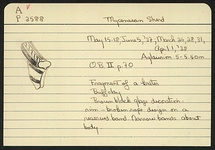 A
P 2588
Mycenaean Sherd
May 15-18, June 5, '37; March 24, 28, 31,
April 1, '38
Asklepieion S-5.50m
OB II p. 70
Fragment of a krater
Buff clay
Brown black glaze decoration
on a
reserved band. Narrow bands about
body